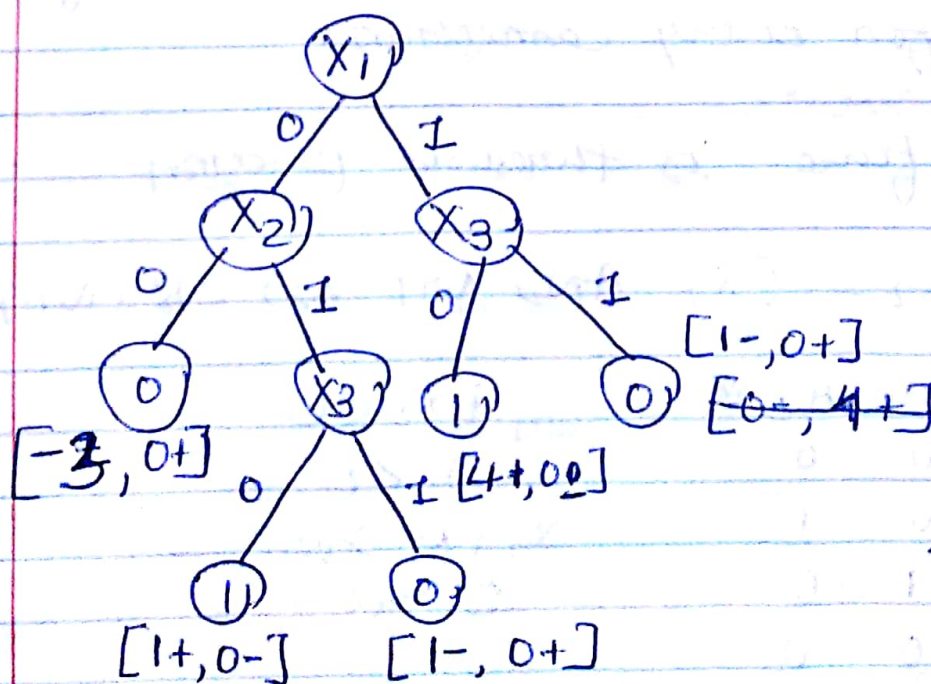 X1
0 1
X2 X3
0 1 0 1
[1-, 0+]
0 X3 1 0
[0-, 4+]
[-3, 0+] 0 1 [4+, 00]
1 0
[1+, 0-] [1-, 0+]